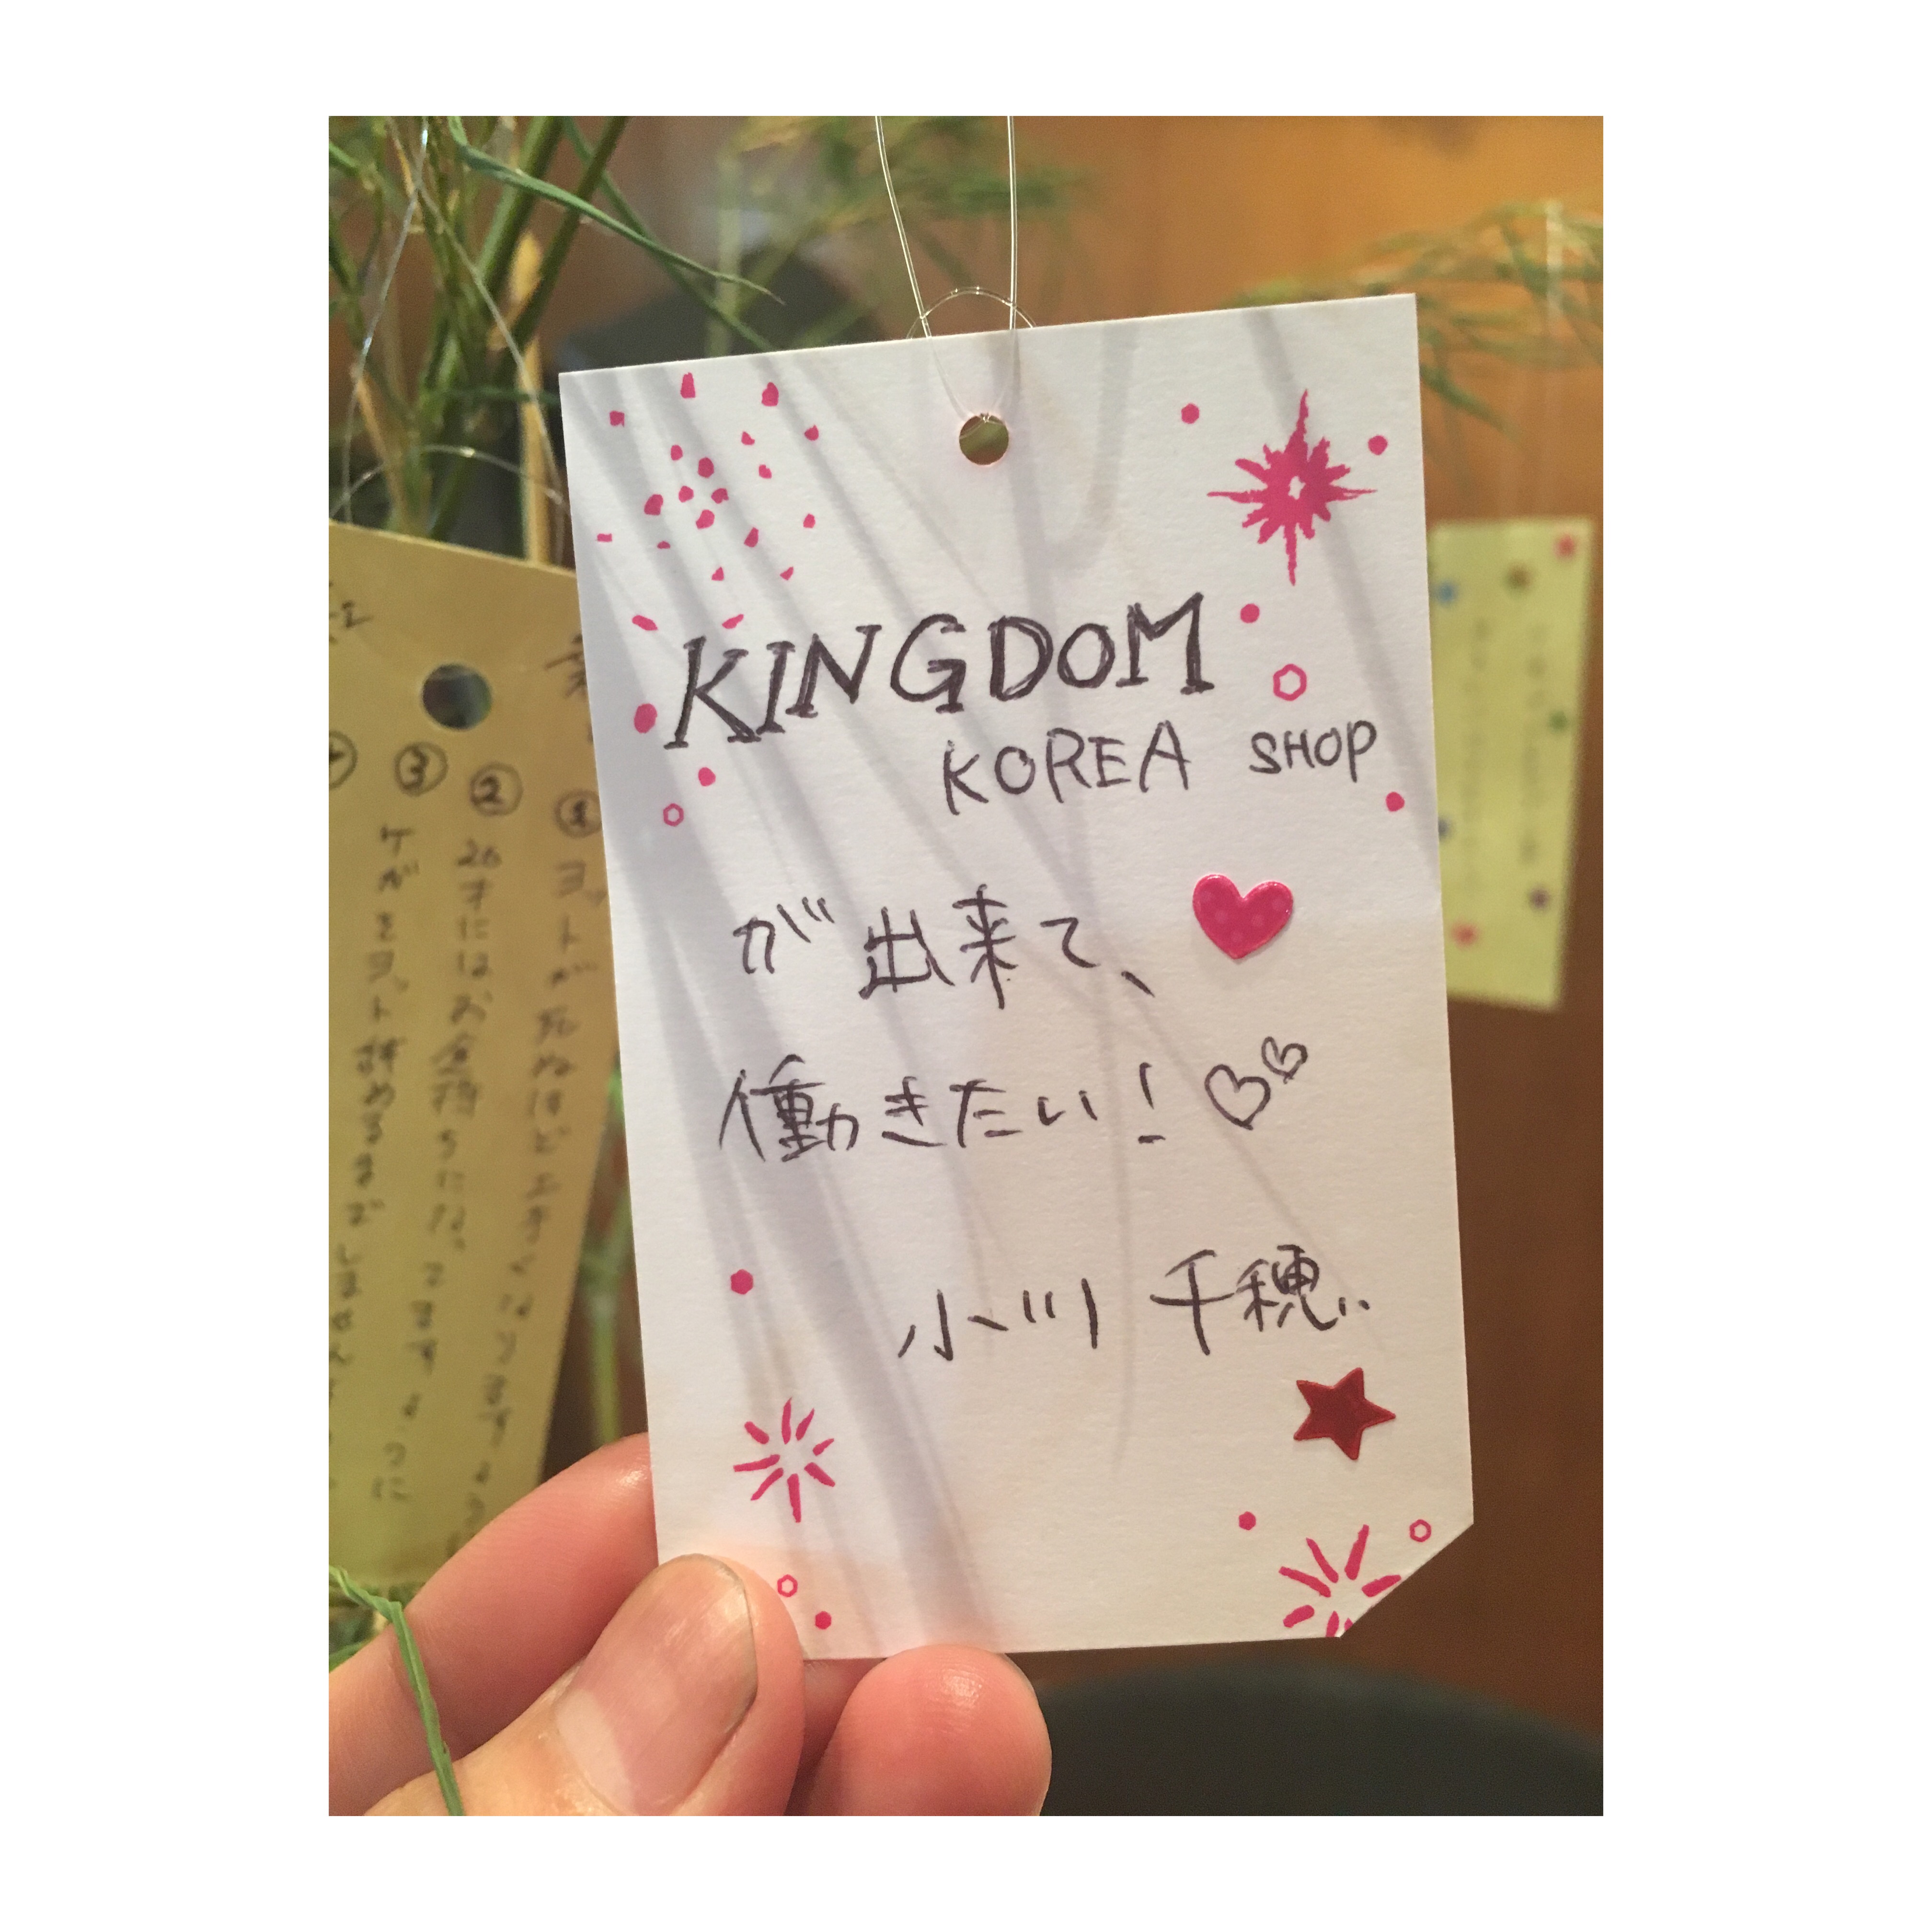 KINGDOM
KOREA SHOP
が出来て、
働きたい!♡♡
小川 千穂..
③
②
①
ケガをヨット辞めるまでしません
26才にはお金持ちになってますように
ヨットが死ぬほど上手くなりますように